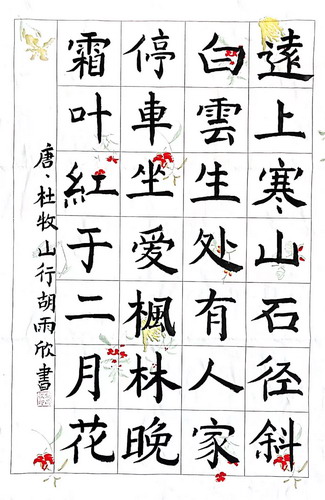 遠上寒山石径斜
白雲生处有人家
停車坐爱楓林晚
霜叶紅于二月花
唐、杜牧山行胡雨欣書